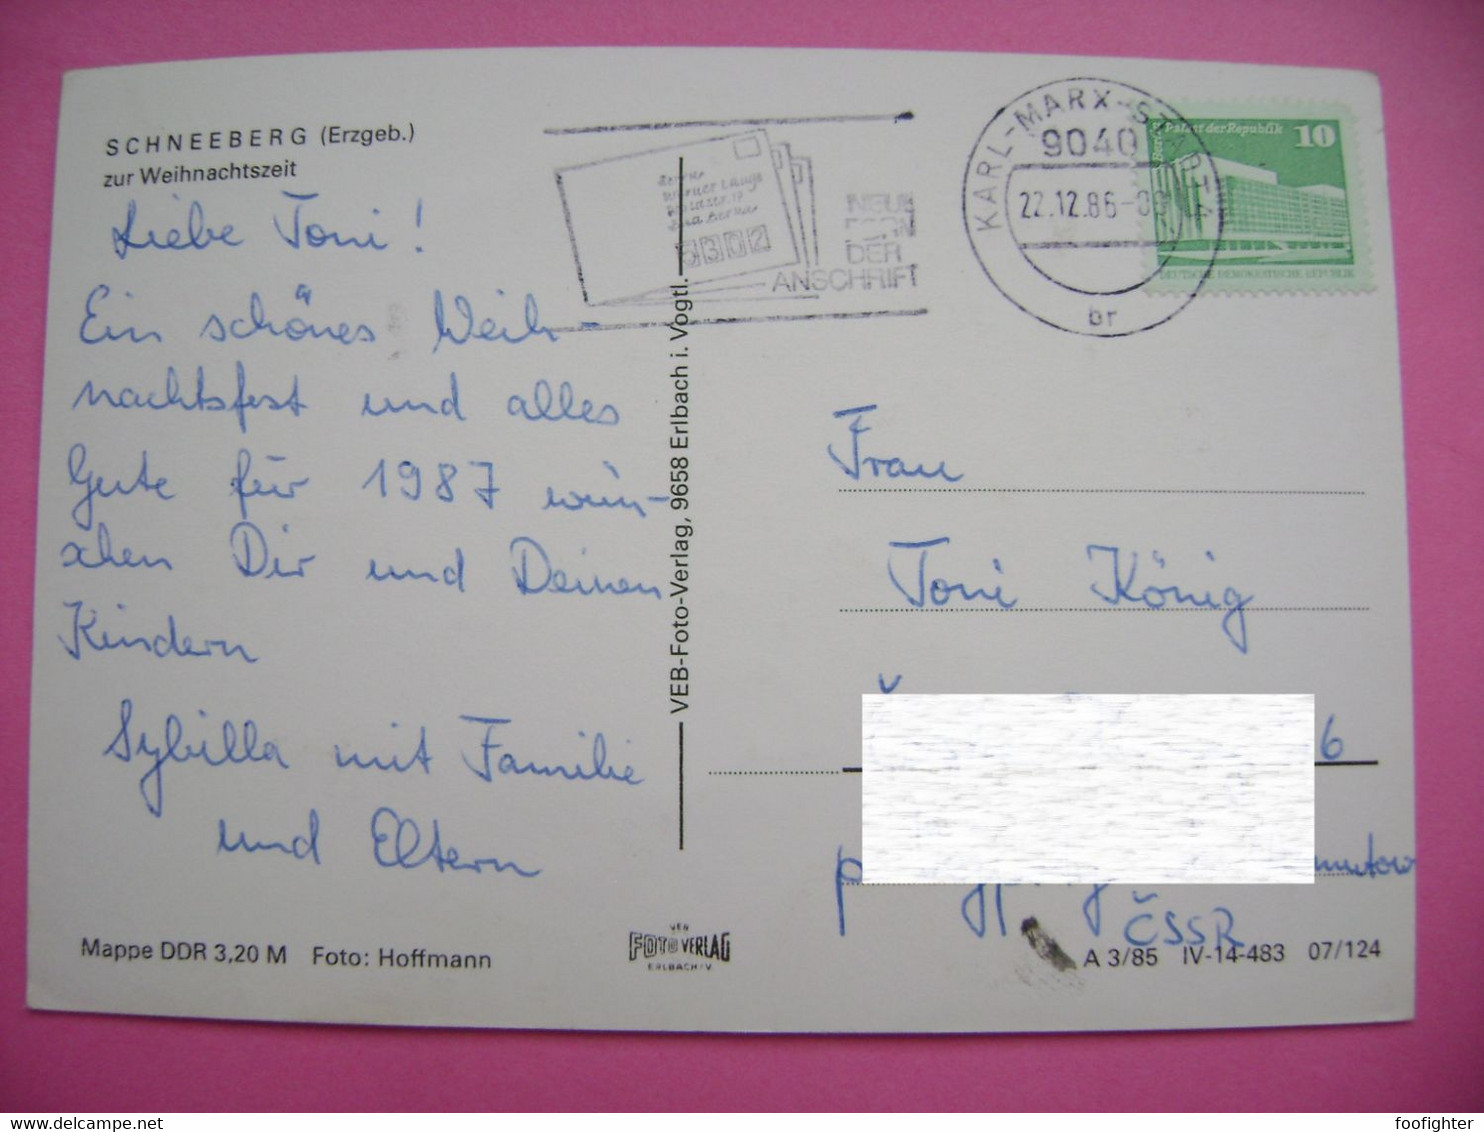 SCHNEEBERG (Erzgeb.)
zur Weihnachtszeit
Liebe Toni!
Ein schönes Weih-
nachtsfest und alles
Gute für 1987 wün-
schen Dir und Deinen
Kindern
Sybilla mit Familie
und Eltern
Mappe DDR 3,20 M Foto: Hoffmann
VEB-Foto-Verlag, 9658 Erlbach i. Vogtl.
VEB
FOTO VERLAG
ERLBACH/V.
5302
NEUE
FORM
DER
ANSCHRIFT
KARL-MARX-STADT
9040
22.12.86
br
Palast der Republik 10
DEUTSCHE DEMOKRATISCHE REPUBLIK
Frau
Toni König
6
ČSSR
A 3/85 IV-14-483 07/124
delcampe.net
foofighter